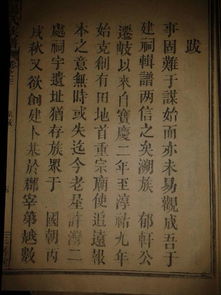 跋
事固難于謀始而亦未易觀成吾于
建祠輯譜兩信之矣溯族 郁軒公
遷岐以來自寶慶二年至淳祐九年
始克創有田地首重宗廟使追遠報
本之意無時或失迄今老星許灣二
處祠宇遺址猶存族眾于 國朝丙
戌秋又欲創建卜基於郡宰第越數